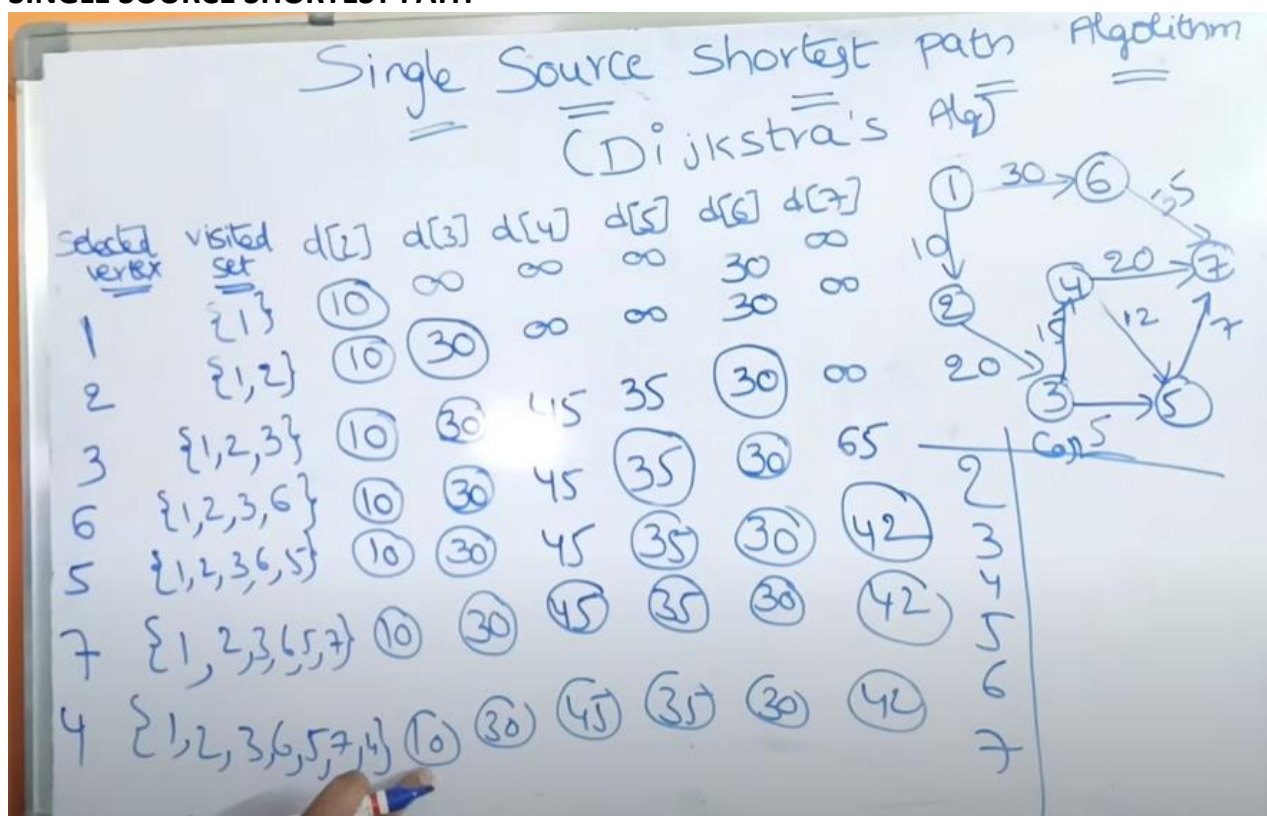 SINGLE SOURCE SHORTEST PATH
Single Source Shortest path Algolithm
(Dijkstra's Alg)
selected vertex visited set d[2] d[3] d[4] d[5] d[6] d[7]
1 {1} 10 ∞ ∞ ∞ 30 ∞
2 {1,2} 10 30 ∞ ∞ 30 ∞
3 {1,2,3} 10 30 45 35 30 ∞
6 {1,2,3,6} 10 30 45 35 30 65
5 {1,2,3,6,5} 10 30 45 35 30 42
7 {1,2,3,6,5,7} 10 30 45 35 30 42
4 {1,2,3,6,5,7,4} 10 30 45 35 30 42
1 30 6
10 35
4 20 7
2 15 12 7
20 3 5
5
Cost
2
3
4
5
6
7